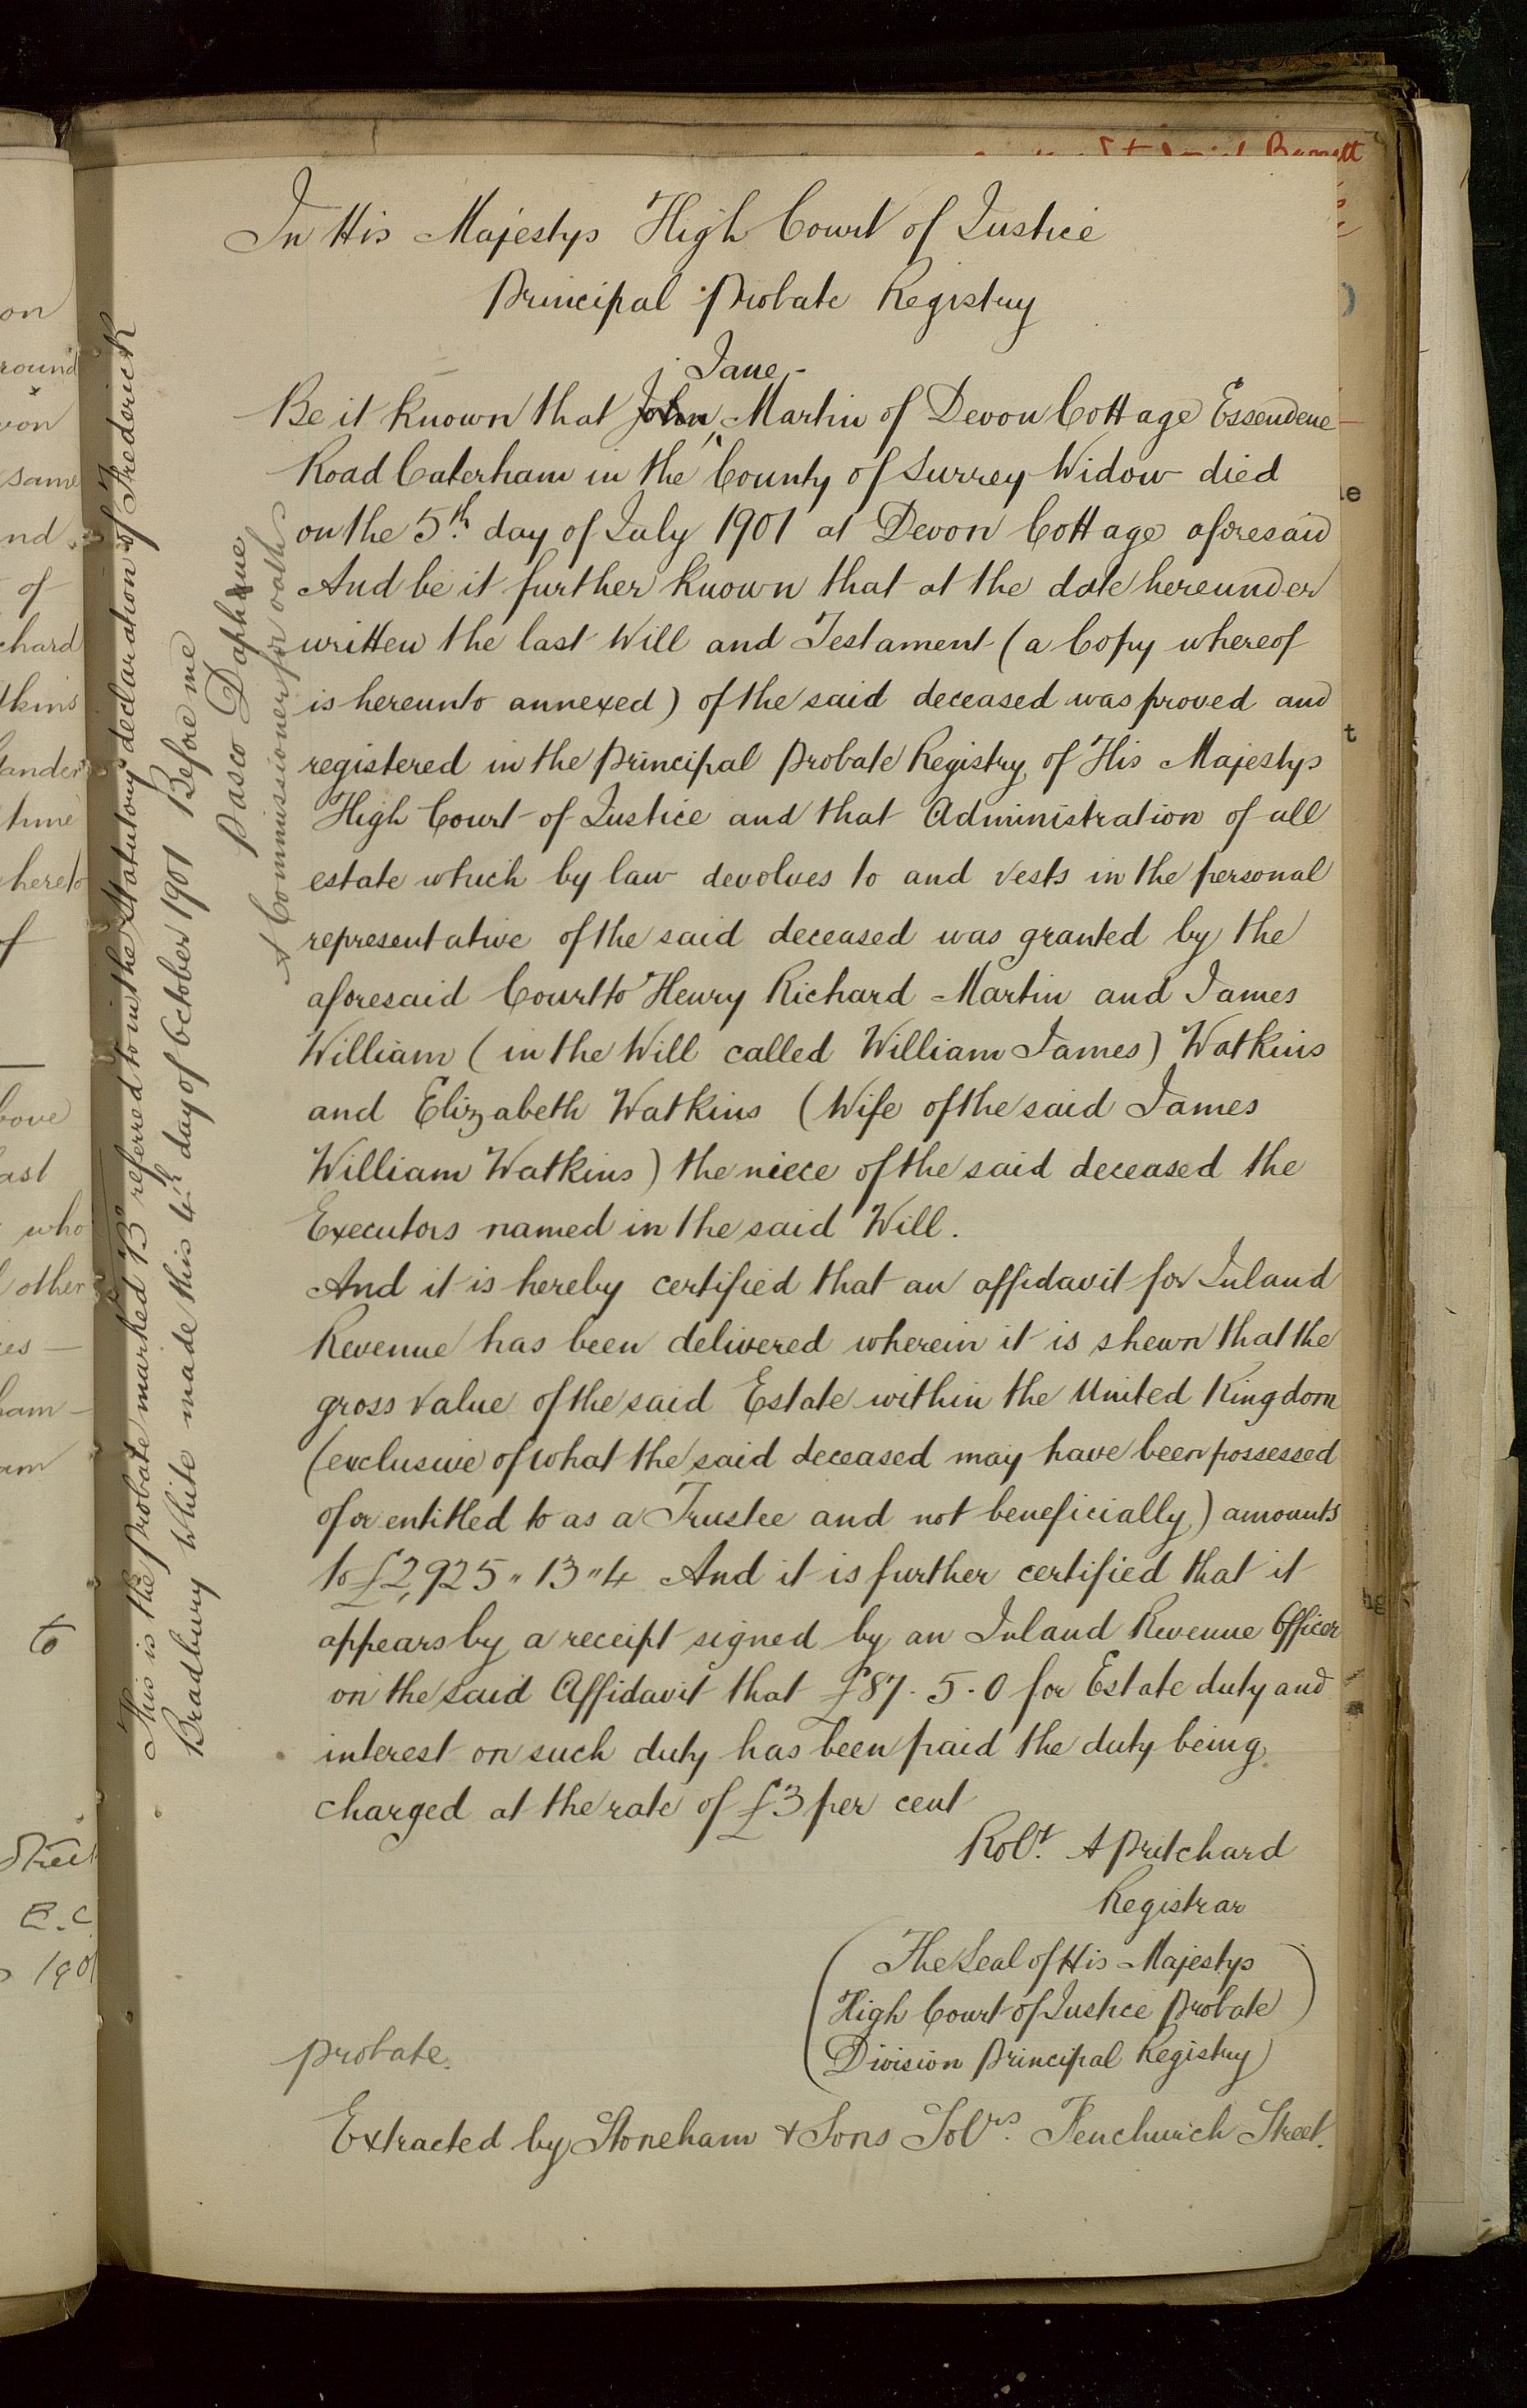 In His Majestys High Court of Justice
Principal Probate Registry
Jane
Be it known that John Martin of Devon Cottage Essendene
Road Caterham in the County of Surrey Widow died
on the 5th day of July 1901 at Devon Cottage aforesaid
And be it further known that at the date hereunder
written the last Will and Testament (a Copy whereof
is hereunto annexed) of the said deceased was proved and
registered in the Principal Probate Registry of His Majestys
High Court of Justice and that Administration of all
estate which by law devolves to and vests in the personal
representative of the said deceased was granted by the
aforesaid Court to Henry Richard Martin and James
William (in the Will called William James) Watkins
and Elizabeth Watkins (Wife of the said James
William Watkins) the niece of the said deceased the
Executors named in the said Will.
And it is hereby certified that an affidavit for Inland
Revenue has been delivered wherein it is shewn that the
gross value of the said Estate within the United Kingdom
(exclusive of what the said deceased may have been possessed
of or entitled to as a Trustee and not beneficially) amounts
to £2,925 " 13 " 4 And it is further certified that it
appears by a receipt signed by an Inland Revenue Officer
on the said Affidavit that £87 . 5 . 0 for Estate duty and
interest on such duty has been paid the duty being
charged at the rate of £3 per cent
Robt. A Pritchard
Registrar
(The Seal of His Majestys
High Court of Justice Probate
Division Principal Registry)
Probate.
Extracted by Stoneham & Sons Solrs. Fenchurch Street.
This is the probate marked "B" referred to in the statutory declaration of Frederick
Bradbury White made this 4th day of October 1901 Before me
Pasco Daphne
A Commissioner for oaths
on
round
von
same
nd
of
chard
tkins
time
hereto
of
bove
ast
who
other
ham
am
to
Street
E.C.
190
Barrett